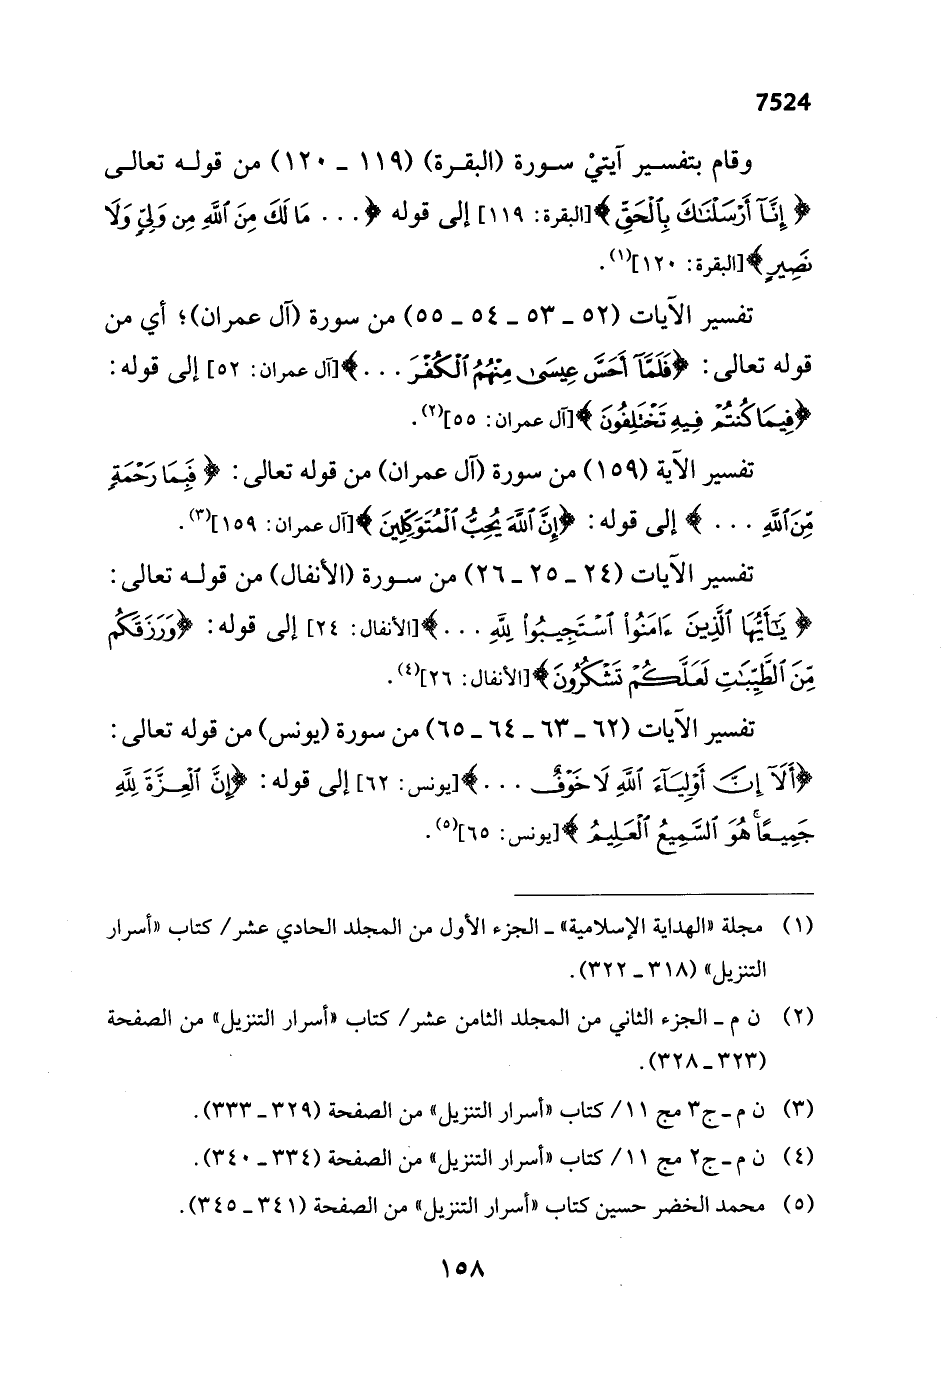 7524
وقام بتفسير آيتيْ سورة (البقرة) (١١٩ ـ ١٢٠) من قوله تعالى
﴿إِنَّآ أَرْسَلْنَٰكَ بِٱلْحَقِّ﴾[البقرة: ١١٩] إلى قوله ﴿... مَا لَكَ مِنَ ٱللَّهِ مِن وَلِيٍّ وَلَا
نَصِيرٍ﴾[البقرة: ١٢٠](١).
تفسير الآيات (٥٢ ـ ٥٣ ـ ٥٤ ـ ٥٥) من سورة (آل عمران)؛ أي من
قوله تعالى: ﴿فَلَمَّآ أَحَسَّ عِيسَىٰ مِنْهُمُ ٱلْكُفْرَ ...﴾[آل عمران: ٥٢] إلى قوله:
﴿فِيمَا كُنتُمْ فِيهِ تَخْتَلِفُونَ﴾[آل عمران: ٥٥](٢).
تفسير الآية (١٥٩) من سورة (آل عمران) من قوله تعالى: ﴿فَبِمَا رَحْمَةٍ
مِّنَ ٱللَّهِ ...﴾ إلى قوله: ﴿إِنَّ ٱللَّهَ يُحِبُّ ٱلْمُتَوَكِّلِينَ﴾[آل عمران: ١٥٩](٣).
تفسير الآيات (٢٤ ـ ٢٥ ـ ٢٦) من سورة (الأنفال) من قوله تعالى:
﴿يَٰٓأَيُّهَا ٱلَّذِينَ ءَامَنُوا۟ ٱسْتَجِيبُوا۟ لِلَّهِ ...﴾[الأنفال: ٢٤] إلى قوله: ﴿وَرَزَقَكُم
مِّنَ ٱلطَّيِّبَٰتِ لَعَلَّكُمْ تَشْكُرُونَ﴾[الأنفال: ٢٦](٤).
تفسير الآيات (٦٢ ـ ٦٣ ـ ٦٤ ـ ٦٥) من سورة (يونس) من قوله تعالى:
﴿أَلَآ إِنَّ أَوْلِيَآءَ ٱللَّهِ لَا خَوْفٌ ...﴾[يونس: ٦٢] إلى قوله: ﴿إِنَّ ٱلْعِزَّةَ لِلَّهِ
جَمِيعًا ۚ هُوَ ٱلسَّمِيعُ ٱلْعَلِيمُ﴾[يونس: ٦٥](٥).
(١) مجلة «الهداية الإسلامية» ـ الجزء الأول من المجلد الحادي عشر/ كتاب «أسرار
التنزيل» (٣١٨ ـ ٣٢٢).
(٢) ن م ـ الجزء الثاني من المجلد الثامن عشر/ كتاب «أسرار التنزيل» من الصفحة
(٣٢٣ ـ ٣٢٨).
(٣) ن م ـ ج٣ مج ١١/ كتاب «أسرار التنزيل» من الصفحة (٣٢٩ ـ ٣٣٣).
(٤) ن م ـ ج٢ مج ١١/ كتاب «أسرار التنزيل» من الصفحة (٣٣٤ ـ ٣٤٠).
(٥) محمد الخضر حسين كتاب «أسرار التنزيل» من الصفحة (٣٤١ ـ ٣٤٥).
١٥٨